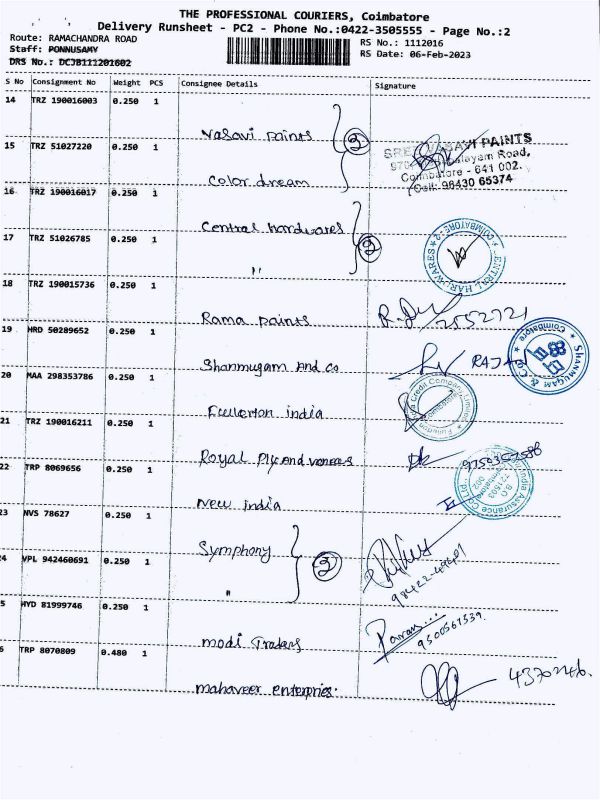 THE PROFESSIONAL COURIERS, Coimbatore
Delivery Runsheet - PC2 - Phone No.:0422-3505555 - Page No.:2
Route: RAMACHANDRA ROAD
RS No.: 1112016
Staff: PONNUSAMY
RS Date: 06-Feb-2023
DRS No.: DCJB111201602
S No Consignment No Weight PCS Consignee Details Signature
14 TRZ 190016003 0.250 1
Vasavi paints 2
SREE VASAVI PAINTS
Road,
Coimbatore - 641 002.
Cell: 98430 65374
15 TRZ 51027220 0.250 1
Color dream
16 TRZ 190016017 0.250 1
Central hardwares 2
17 TRZ 51026785 0.250 1
"
18 TRZ 190015736 0.250 1
Rama paints
2552721
19 HRD 50289652 0.250 1
Shanmugam and co
RAJA
SHANMUGAM & CO
Coimbatore
20 MAA 298353786 0.250 1
Fullerton india
21 TRZ 190016211 0.250 1
Royal Ply and veneers
22 TRP 8069656 0.250 1
New india
23 NVS 78627 0.250 1
Symphony 2
4 VPL 942460691 0.250 1
"
5 HYD 81999746 0.250 1
modi Traders
9500561539
6 TRP 8070809 0.480 1
mahaveer enterpries.
4370246.